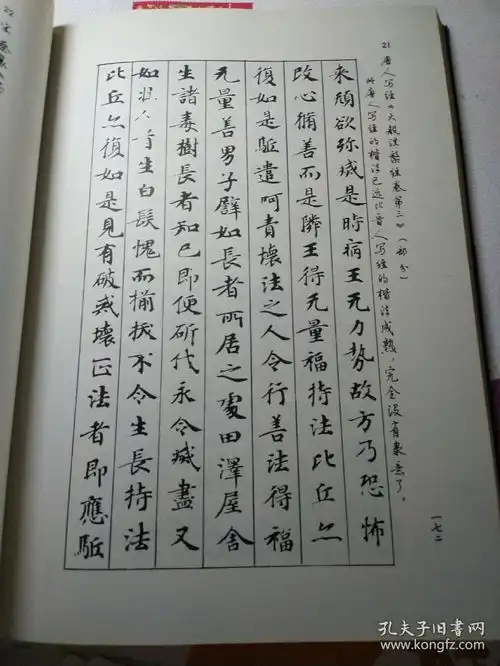 21 唐人写经《大般涅槃经卷第三》(部分)
此唐人写经的楷法已远比晋人写经的楷法成熟,完全没有隶意了。
来頋欲弥滅是時病王无力勢故方乃恐怖
改心脩善而是隣王得无量福持法比丘亦
復如是駈遣呵責壞法之人令行善法得福
无量善男子譬如長者所居之處田澤屋舍
生諸毒樹長者知已即便斫伐永令滅盡又
如壯人首生白髮愧而揃拔不令生長持法
比丘亦復如是見有破戒壞正法者即應駈
一七二
22
孔夫子旧书网
www.kongfz.com